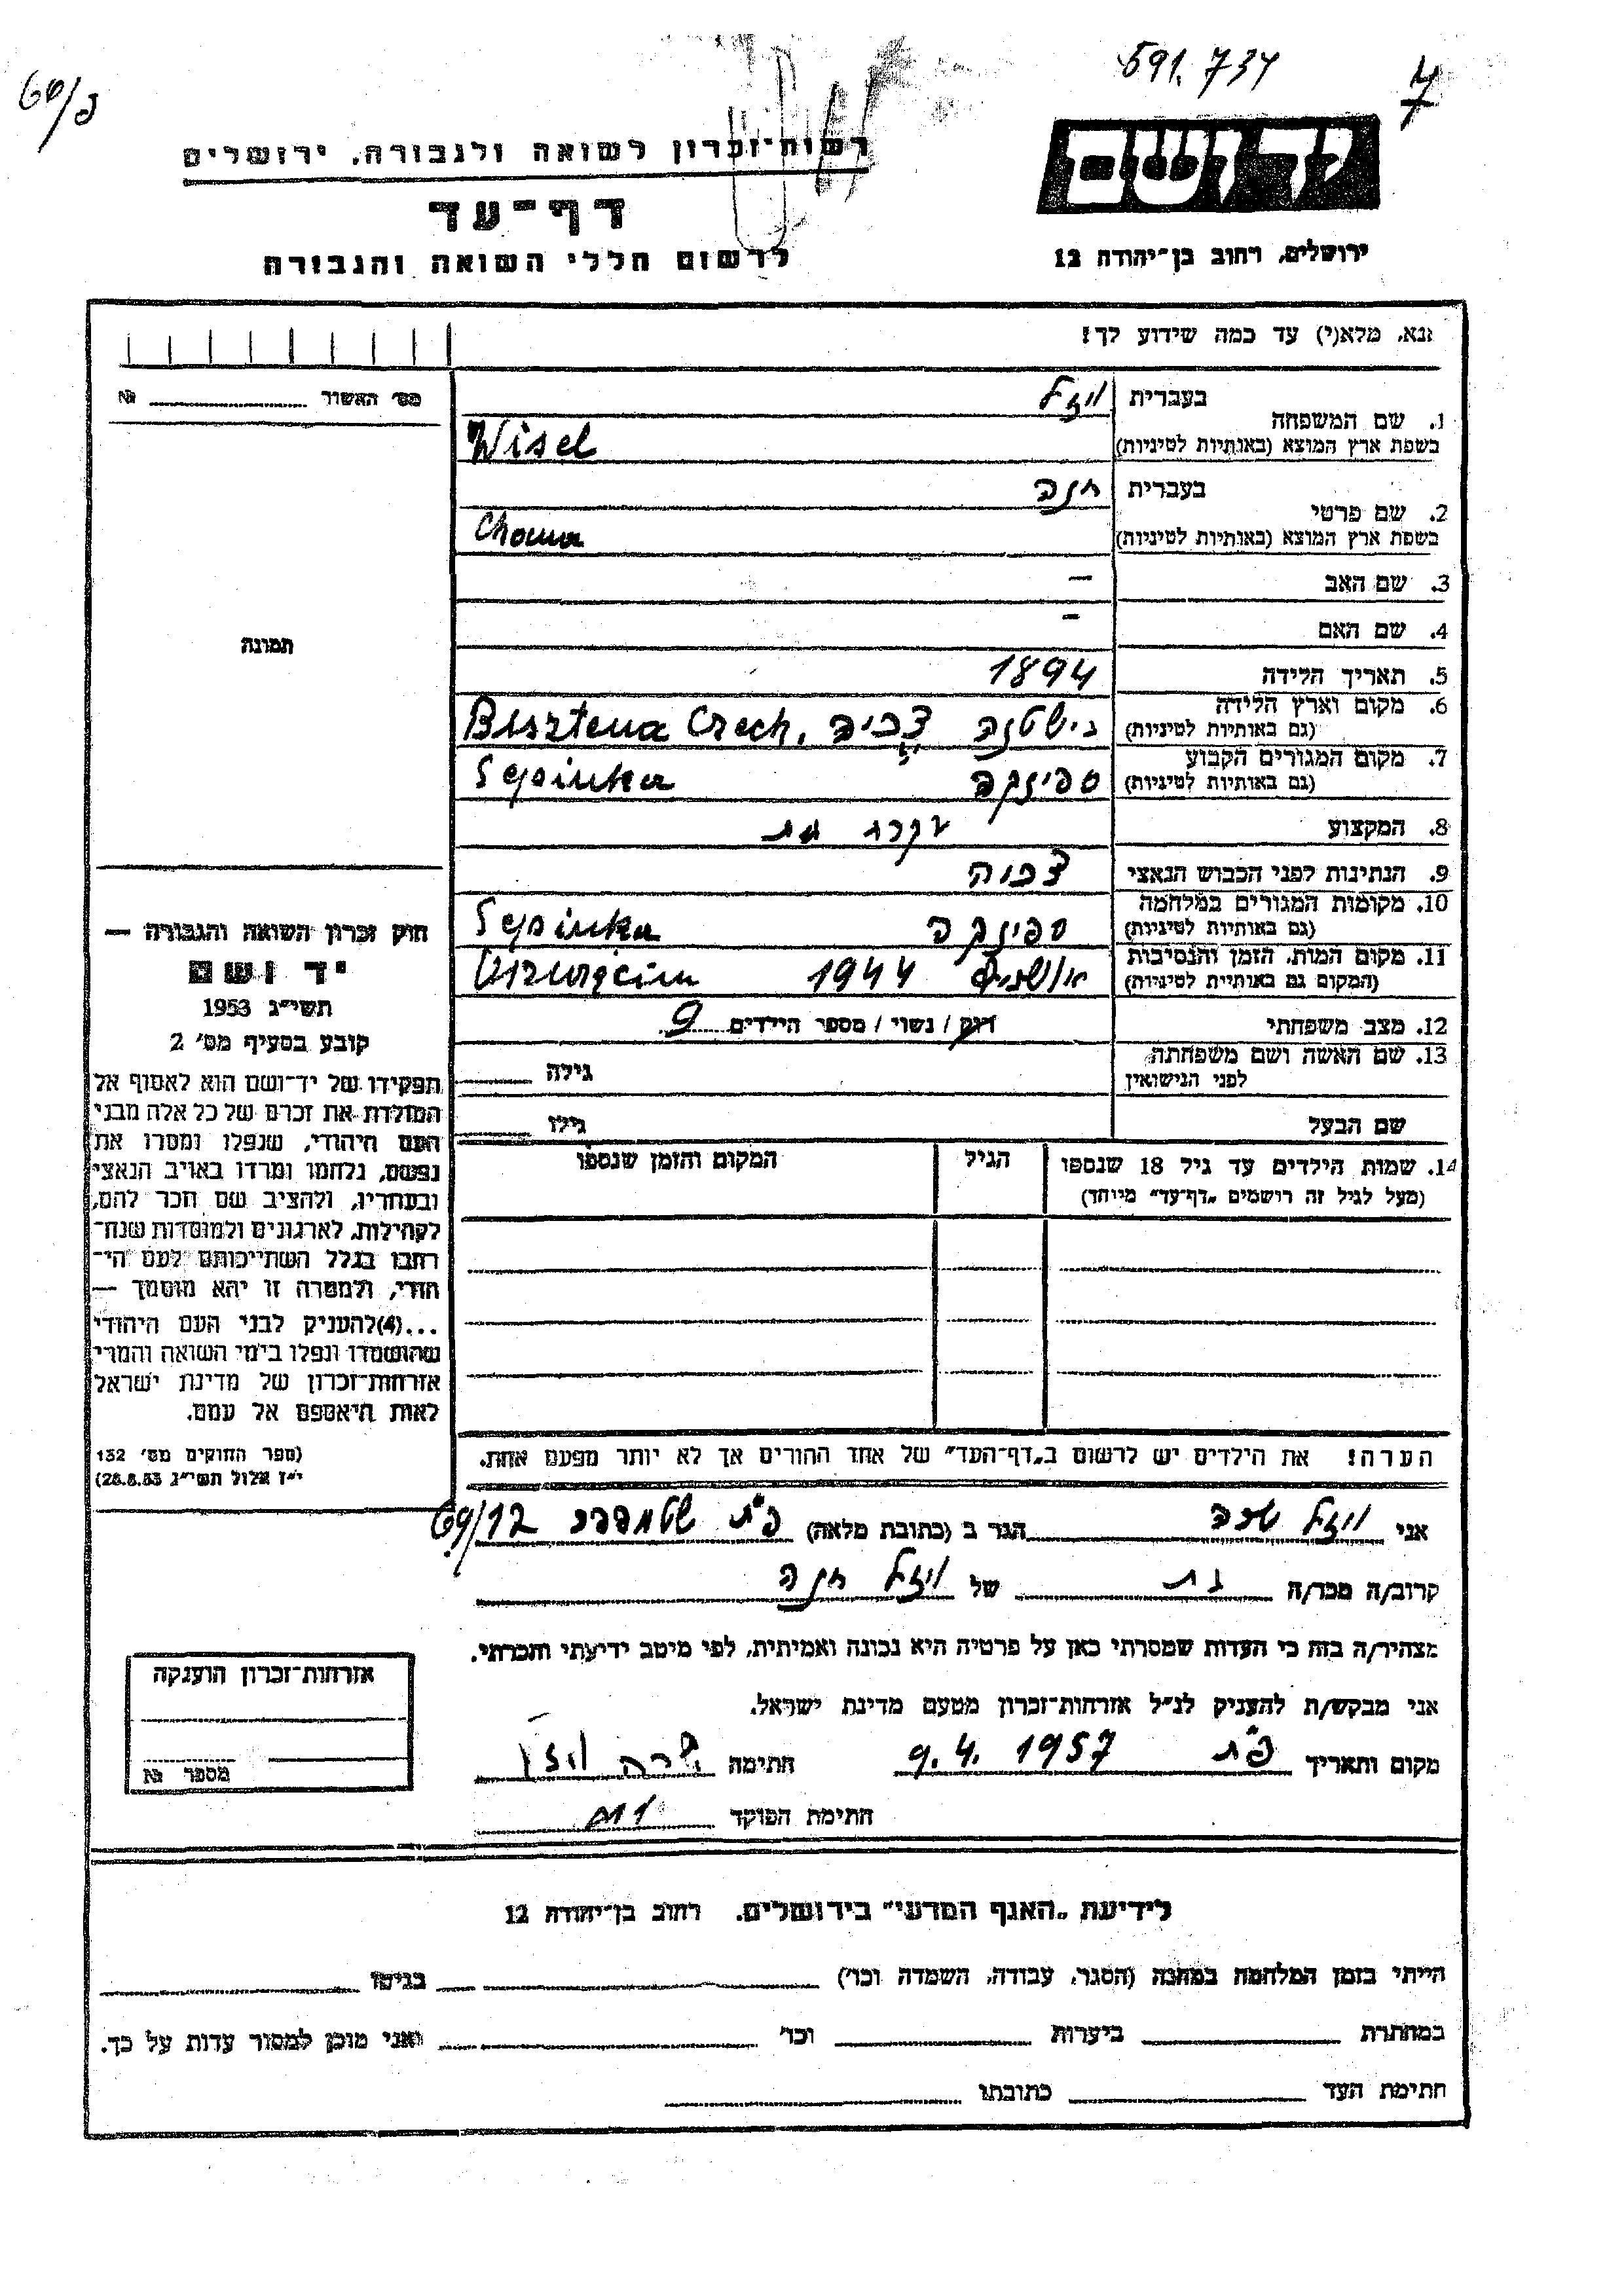 591.734
7
60/פ
יד ושם
ירושלים, רחוב בן־יהודה 12
רשות־זכרון לשואה ולגבורה, ירושלים
דף־עד
לרשום חללי השואה והגבורה
נא, מלא(י) עד כמה שידוע לך!
מס׳ האשור № 
1. שם המשפחה בעברית ויזל
בשפת ארץ המוצא (באותיות לטיניות) Wisel
2. שם פרטי בעברית חנה
בשפת ארץ המוצא (באותיות לטיניות) Chana
3. שם האב –
4. שם האם –
5. תאריך הלידה 1894
6. מקום וארץ הלידה (גם באותיות לטיניות) בישטנה צ'כיה Bisztena Czech.
7. מקום המגורים הקבוע (גם באותיות לטיניות) ספינקה Sepinka
8. המקצוע עקרת בית
9. הנתינות לפני הכבוש הנאצי צכיה
10. מקומות המגורים במלחמה (גם באותיות לטיניות) ספינקה Sepinka
11. מקום המות, הזמן והנסיבות (המקום גם באותיית לטיניות) 1944 Oszwięcim
12. מצב משפחתי רוק / נשוי / מספר הילדים 9
13. שם האשה ושם משפחתה לפני הנישואין גילה
שם הבעל גילו
14. שמות הילדים עד גיל 18 שנספו הגיל המקום והזמן שנספו
(מעל לגיל זה רושמים „דף־עד" מייוחד)
הערה! את הילדים יש לרשום ב„דף־העד" של אחד ההורים אך לא יותר מפעם אחת.
תמונה
חוק זכרון השואה והגבורה —
יד ושם
תשי״ג 1953
קובע בסעיף מס׳ 2
תפקידו של יד־ושם הוא לאסוף אל
המולדת את זכרם של כל אלה מבני
העם היהודי, שנפלו ומסרו את
נפשם, נלחמו ומרדו באויב הנאצי
ובעוזריו, ולהציב שם וזכר להם,
לקהילות, לארגונים ולמוסדות שנח־
רבו בגלל השתייכותם לעם הי־
הודי, ולמטרה זו יהא מוסמך —
...(4)להעניק לבני העם היהודי
שהושמדו ונפלו בימי השואה והמרי
אזרחות־זכרון של מדינת ישראל
לאות היאספם אל עמם.
(ספר החוקים מס׳ 132
י״ז אלול תשי״ג 28.8.53)
אני ויזל שרה הגר ב (כתובת מלאה) פ״ת 69/12
קרוב/ה מכר/ה בת של ויזל חנה
מצהיר/ה בזה כי העדות שמסרתי כאן על פרטיה היא נכונה ואמיתית, לפי מיטב ידיעתי והכרתי.
אני מבקש/ת להעניק לנ״ל אזרחות־זכרון מטעם מדינת ישראל.
מקום ותאריך פ״ת 9.4.1957 חתימה שרה ויזל
חתימת הפוקד
אזרחות־זכרון הוענקה
מספר №
לידיעת „האגף המדעי" בירושלים, רחוב בן־יהודה 12
הייתי בזמן המלחמה במחנה (הסגר, עבודה, השמדה וכו׳) בגיטו
במחתרת ביערות וכו׳ ואני מוכן למסור עדות על כך.
חתימת העד כתובתו